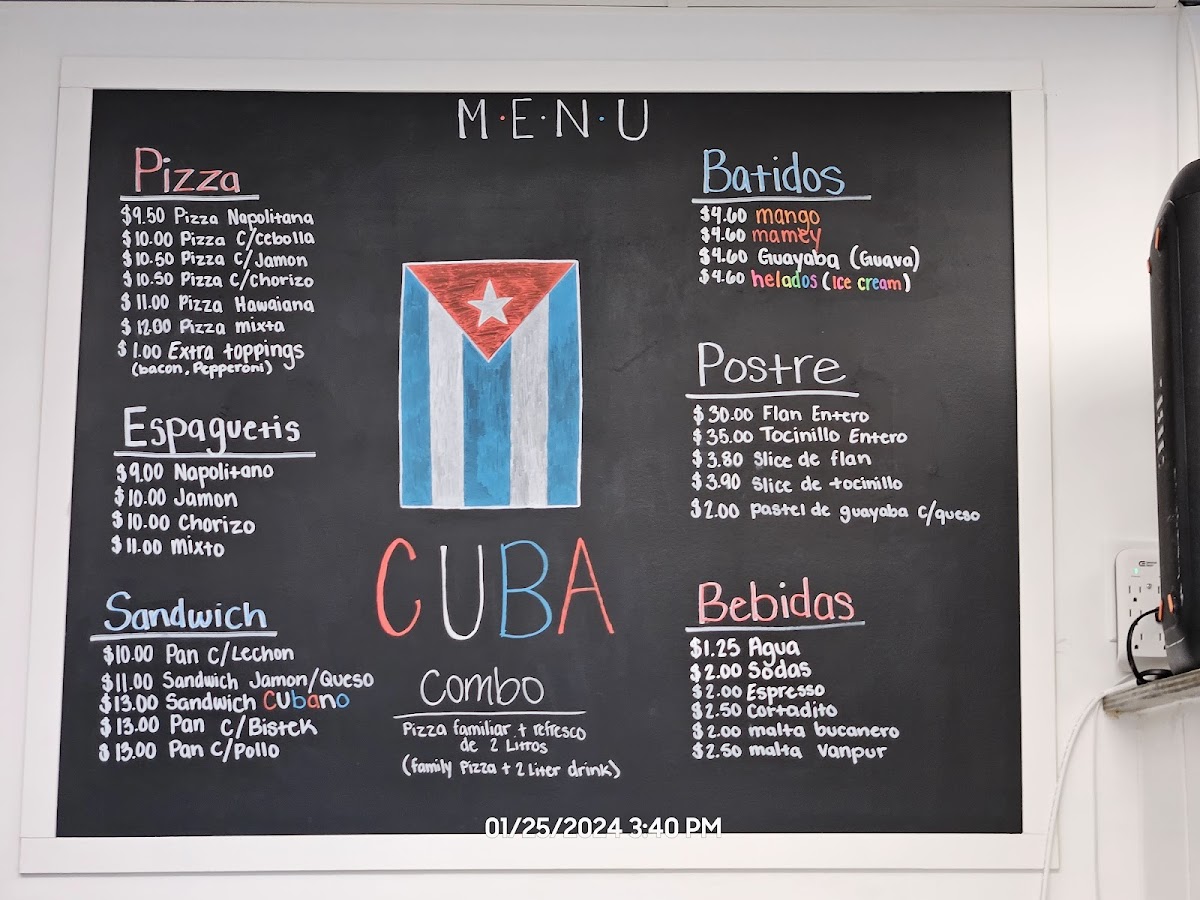 M·E·N·U
Pizza
$9.50 Pizza Napolitana
$10.00 Pizza C/cebolla
$10.50 Pizza C/Jamon
$10.50 Pizza C/Chorizo
$11.00 Pizza Hawaiana
$12.00 Pizza mixta
$1.00 Extra toppings
(bacon, Pepperoni)
Espaguetis
$9.00 Napolitano
$10.00 Jamon
$10.00 Chorizo
$11.00 mixto
Sandwich
$10.00 Pan C/Lechon
$11.00 Sandwich Jamon/Queso
$13.00 Sandwich Cubano
$13.00 Pan C/Bistek
$13.00 Pan C/Pollo
CUBA
Combo
Pizza familiar + refresco
de 2 Litros
(family Pizza + 2 Liter drink)
Batidos
$4.60 mango
$4.60 mamey
$4.60 Guayaba (Guava)
$4.60 helados (ice cream)
Postre
$30.00 Flan Entero
$35.00 Tocinillo Entero
$3.80 Slice de flan
$3.90 Slice de tocinillo
$2.00 pastel de guayaba c/queso
Bebidas
$1.25 Agua
$2.00 Sodas
$2.00 Espresso
$2.50 Cortadito
$2.00 malta bucanero
$2.50 malta Vanpur
01/25/2024 3:40 PM